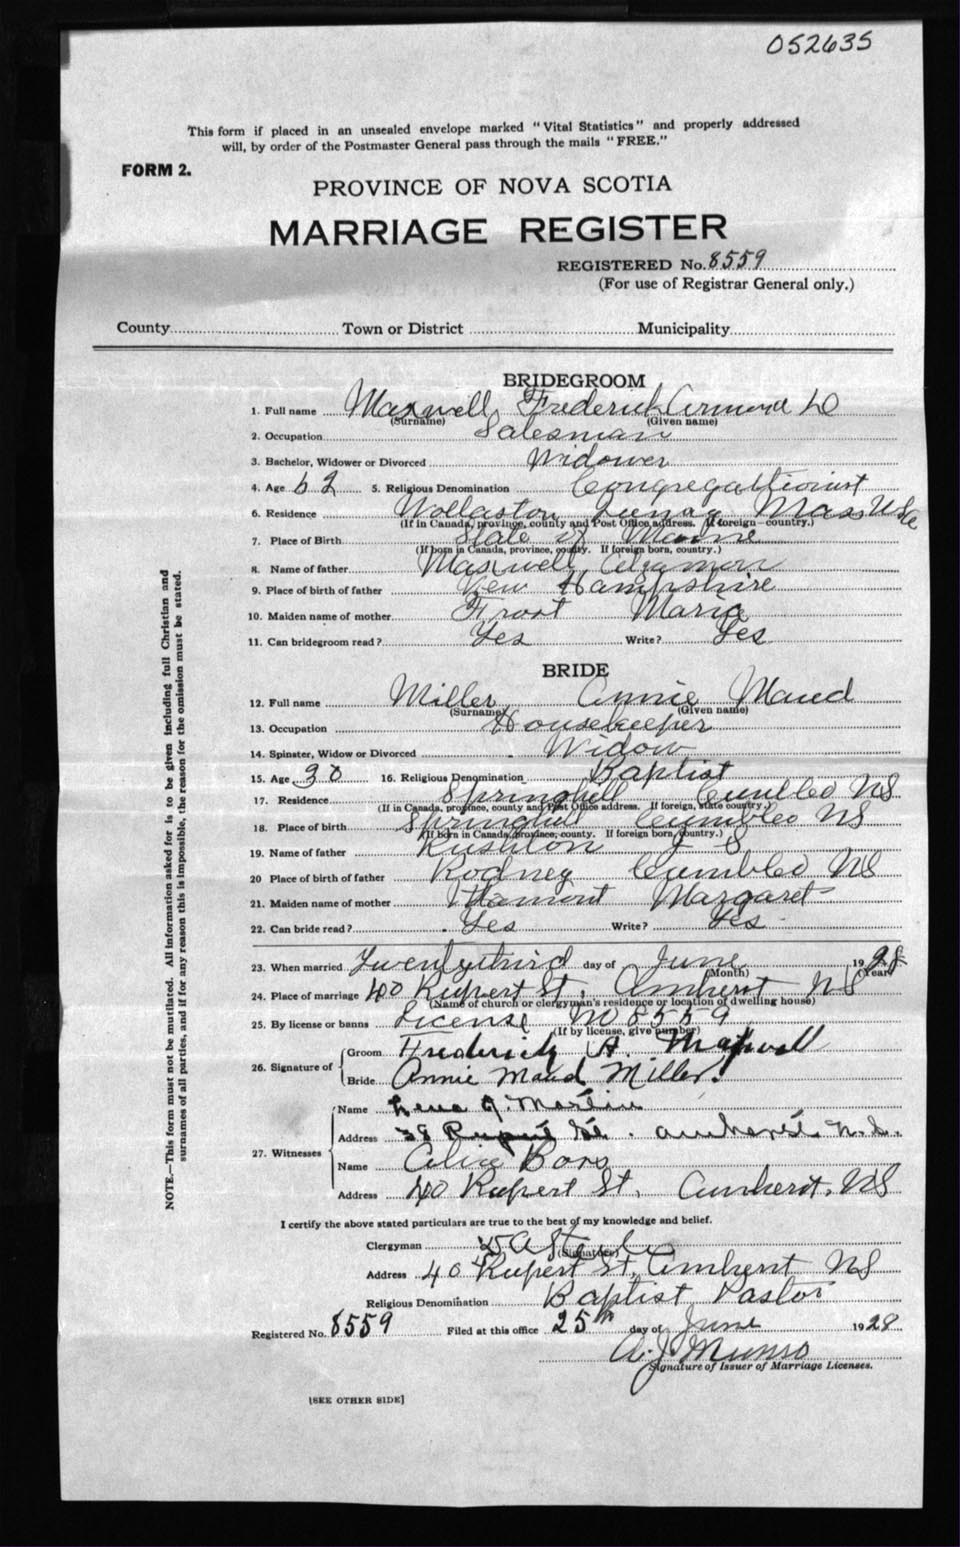 052635
This form if placed in an unsealed envelope marked "Vital Statistics" and properly addressed
will, by order of the Postmaster General pass through the mails "FREE."
FORM 2.
PROVINCE OF NOVA SCOTIA
MARRIAGE REGISTER
REGISTERED No. 8559
(For use of Registrar General only.)
County Town or District Municipality
BRIDEGROOM
1. Full name Maxwell, Frederick Armond
(Surname) (Given name)
2. Occupation Salesman
3. Bachelor, Widower or Divorced Widower
4. Age 62 5. Religious Denomination Congregationist
6. Residence Wollaston Mass USA
(If in Canada, province, county and Post Office address. If foreign—country.)
7. Place of Birth State of Maine
(If born in Canada, province, county. If foreign born, country.)
8. Name of father Maxwell
9. Place of birth of father New Hampshire
10. Maiden name of mother Frost Maria
11. Can bridegroom read? Yes Write? Yes
BRIDE
12. Full name Miller Annie Maud
(Surname) (Given name)
13. Occupation Housekeeper
14. Spinster, Widow or Divorced Widow
15. Age 30 16. Religious Denomination Baptist
17. Residence Springhill Cumb Co NS
(If in Canada, province, county and Post Office address. If foreign, state country.)
18. Place of birth Springhill Cumb Co NS
(If born in Canada, province, county. If foreign born, country.)
19. Name of father Rushton J S
20 Place of birth of father Rodney Cumb Co NS
21. Maiden name of mother Margaret
22. Can bride read? Yes Write? Yes
23. When married Twentythird day of June 1928
(Month) (Year)
24. Place of marriage 40 Rupert St, Amherst NS
(Name of church or clergyman's residence or location of dwelling house)
25. By license or banns License No 8559
(If by license, give number)
26. Signature of
Groom Frederick A. Maxwell
Bride Annie Maud Miller
27. Witnesses
Name Lena A. Martin
Address 38 Rupert St. Amherst N.S.
Name Alice
Address 40 Rupert St, Amherst, NS
I certify the above stated particulars are true to the best of my knowledge and belief.
Clergyman
(Signature)
Address 40 Rupert St, Amherst NS
Religious Denomination Baptist Pastor
Registered No. 8559 Filed at this office 25th day of June 1928
A. J. Munro
Signature of Issuer of Marriage Licenses.
[SEE OTHER SIDE]
NOTE.—This form must not be mutilated. All information asked for is to be given including full Christian and
surnames of all parties, and if for any reason this is impossible, the reason for the omission must be stated.